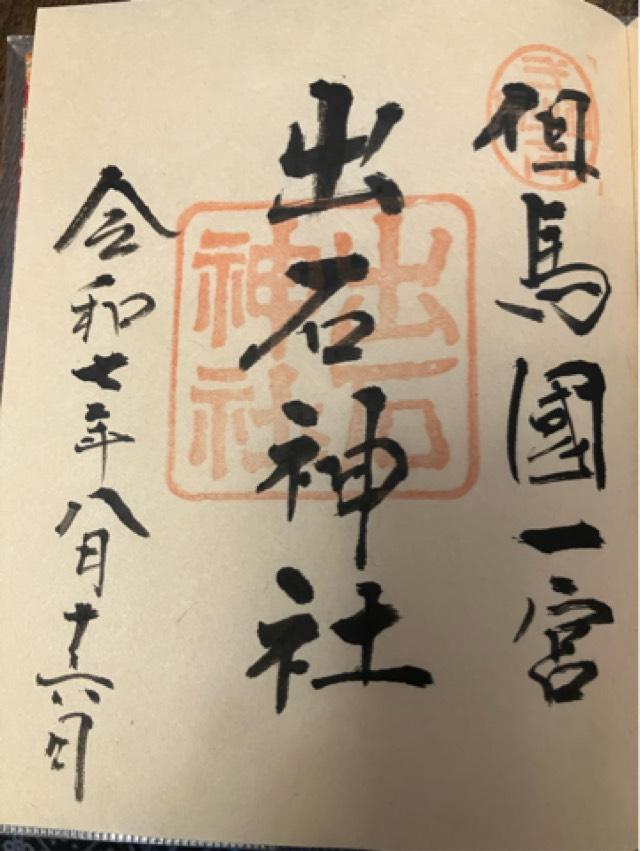 但馬國一宮
出石神社
出石神社
令和七年八月十六日